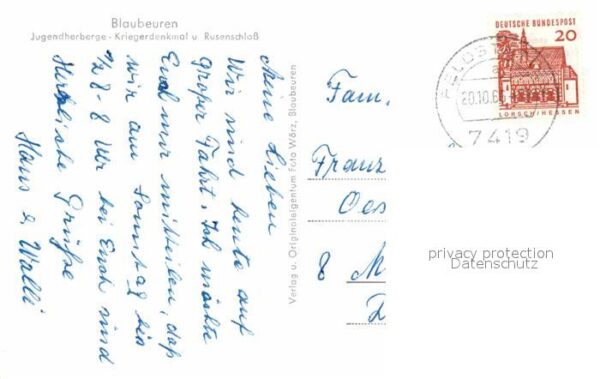 Blaubeuren
Jugendherberge - Kriegerdenkmal u. Rusenschloß
Meine Lieben
Wir sind heute auf
großer Fahrt. Ich möchte
Euch nur mitteilen, daß
wir am Samstag bis
1/2 8 - 8 Uhr bei Euch sind
Herzliche Grüße
Hans & Walli
Verlag u. Originaleigentum Foto Wörz, Blaubeuren
Fam.
Franz
Oes
8 M
DEUTSCHE BUNDESPOST
20
LORSCH/HESSEN
20.10.66
7419
privacy protection
Datenschutz